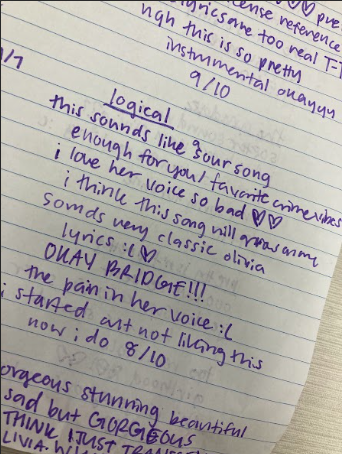 ♡♡ pre
ense reference
lyrics are too real T-T
ugh this is so pretty
instrumental okayyy
9/10
logical
this sounds like a sour song
enough for you / favorite crime vibes
i love her voice so bad ♡♡
i think this song will grow on me
sounds very classic olivia
lyrics :( ♡
OKAY BRIDGE!!!
the pain in her voice :(
i started out not liking this
now i do 8/10
orgeous stunning beautiful
sad but GORGEOUS
THINK I JUST
LIVIA